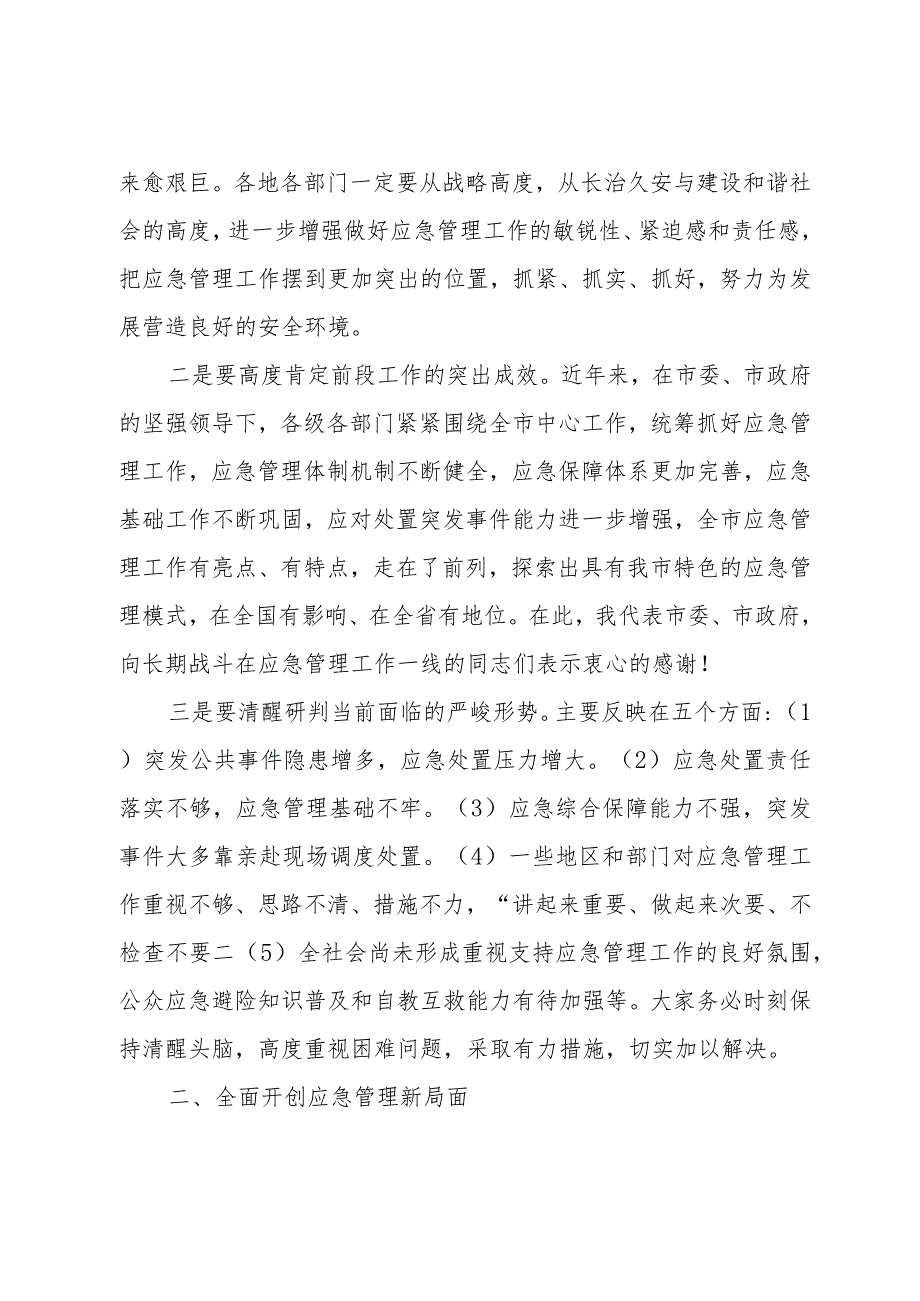 来愈艰巨。各地各部门一定要从战略高度，从长治久安与建设和谐社
会的高度，进一步增强做好应急管理工作的敏锐性、紧迫感和责任感，
把应急管理工作摆到更加突出的位置，抓紧、抓实、抓好，努力为发
展营造良好的安全环境。
二是要高度肯定前段工作的突出成效。近年来，在市委、市政府
的坚强领导下，各级各部门紧紧围绕全市中心工作，统筹抓好应急管
理工作，应急管理体制机制不断健全，应急保障体系更加完善，应急
基础工作不断巩固，应对处置突发事件能力进一步增强，全市应急管
理工作有亮点、有特点，走在了前列，探索出具有我市特色的应急管
理模式，在全国有影响、在全省有地位。在此，我代表市委、市政府，
向长期战斗在应急管理工作一线的同志们表示衷心的感谢！
三是要清醒研判当前面临的严峻形势。主要反映在五个方面：（1
）突发公共事件隐患增多，应急处置压力增大。（2）应急处置责任
落实不够，应急管理基础不牢。（3）应急综合保障能力不强，突发
事件大多靠亲赴现场调度处置。（4）一些地区和部门对应急管理工
作重视不够、思路不清、措施不力，“讲起来重要、做起来次要、不
检查不要二（5）全社会尚未形成重视支持应急管理工作的良好氛围，
公众应急避险知识普及和自教互救能力有待加强等。大家务必时刻保
持清醒头脑，高度重视困难问题，采取有力措施，切实加以解决。
二、全面开创应急管理新局面